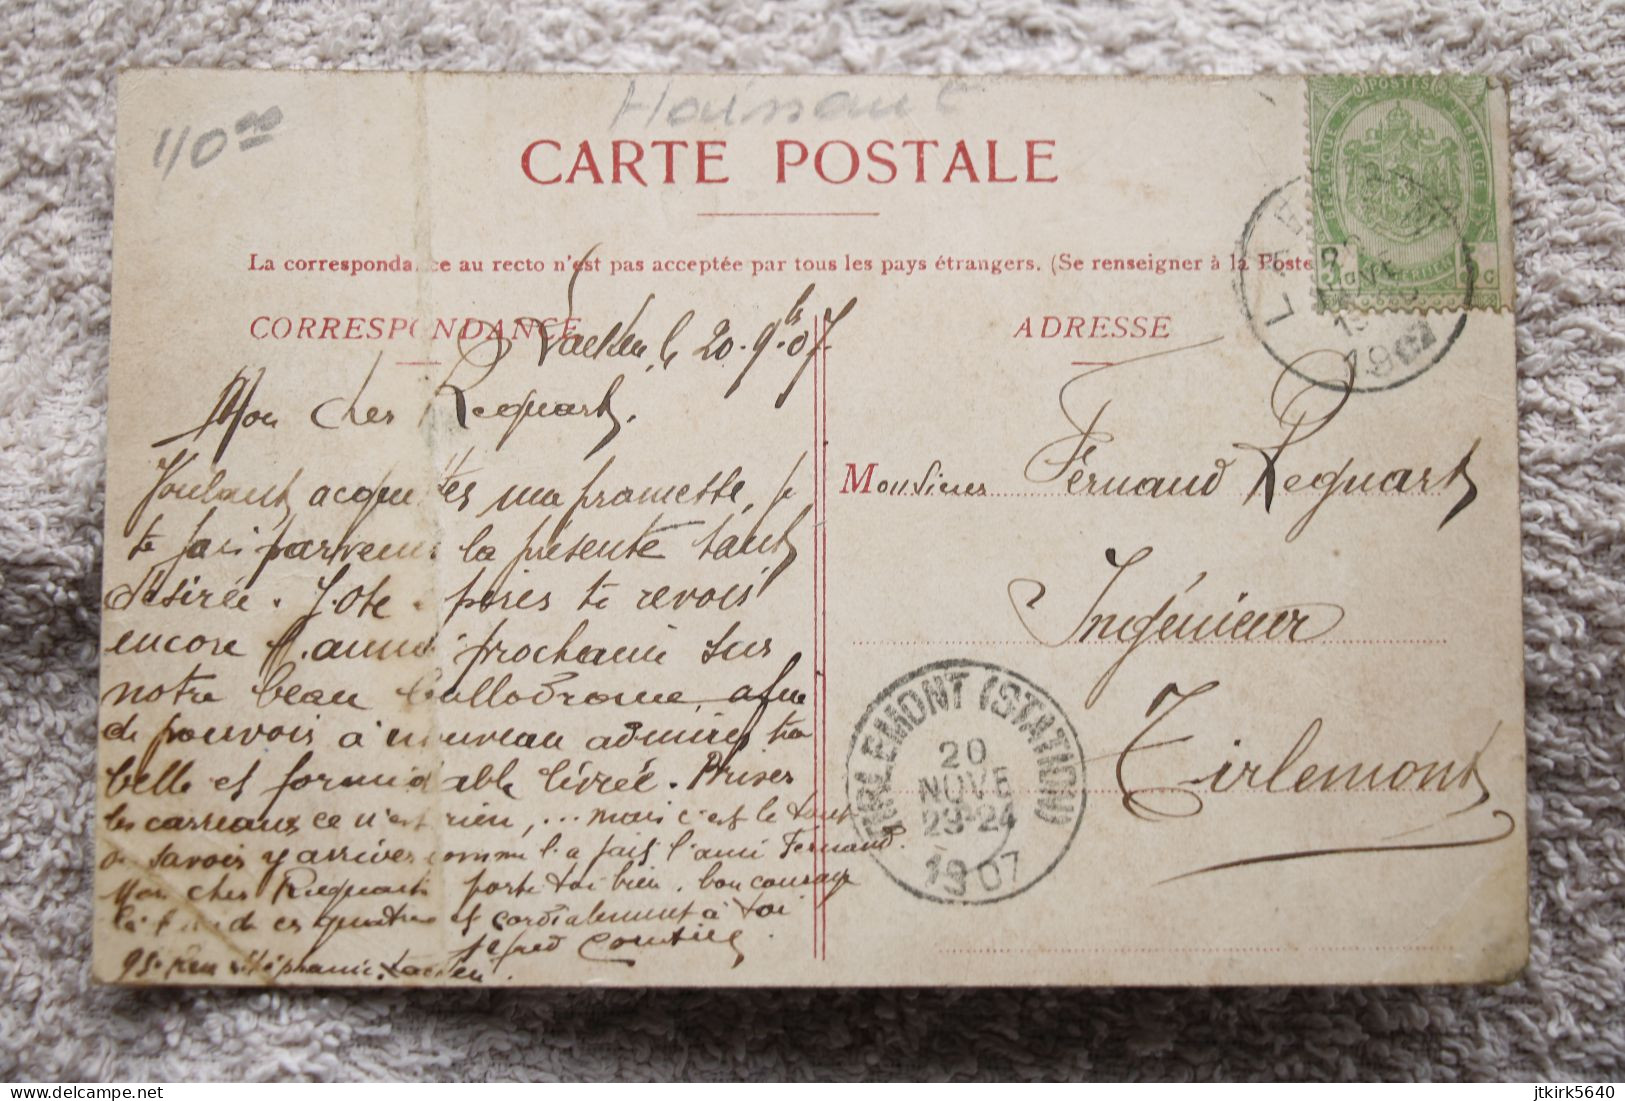 40.00
Hainaut
CARTE POSTALE
La correspondance au recto n'est pas acceptée par tous les pays étrangers. (Se renseigner à la Poste
CORRESPONDANCE
Laeken, le 20-9bre 07.
Mon cher Requart,
Voulant acquitter ma promesse, je
te fais parvenir la présente tant
désirée. J'ose espérer te revoir
encore l'année prochaine sur
notre beau ballodrome afin
de pouvoir à nouveau admirer ta
belle et formidable livrée. Priser
les carreaux ce n'est rien, ... mais c'est le tout
de savoir y arriver comme l'a fait l'ami Fernand.
Mon cher Requart porte toi bien, bon courage
et cordialement à toi
Alfred
95 rue Stéphanie, Laeken.
ADRESSE
Monsieur Fernand Requart
Ingénieur
Tirlemont
POSTES
BELGIQUE
BELGIË
5 c
LAEKEN
1907
TIRLEMONT (STATION)
20
NOVE
23-24
1907
delcampe.net
jtkirk5640